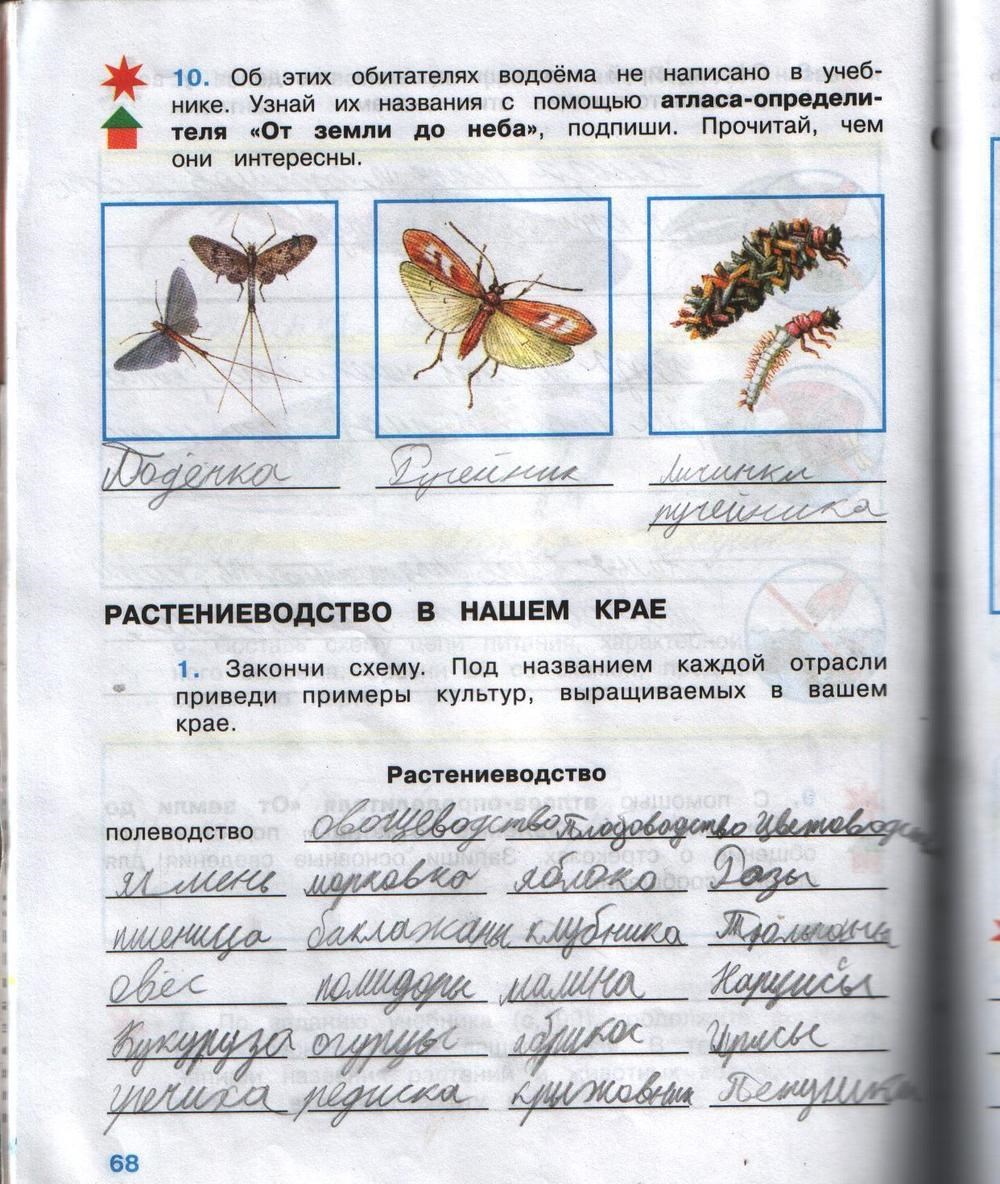 10. Об этих обитателях водоёма не написано в учеб-
нике. Узнай их названия с помощью атласа-определи-
теля «От земли до неба», подпиши. Прочитай, чем
они интересны.
Подёнка Ручейник личинки
ручейника
РАСТЕНИЕВОДСТВО В НАШЕМ КРАЕ
1. Закончи схему. Под названием каждой отрасли
приведи примеры культур, выращиваемых в вашем
крае.
Растениеводство
полеводство овощеводство Плодоводство Цветоводство
ячмень морковка яблоко Розы
пшеница баклажаны клубника Тюльпаны
овёс помидоры малина Нарцисы
Кукуруза огурцы абрикос Ирисы
гречиха редиска крыжовник Петушки
68